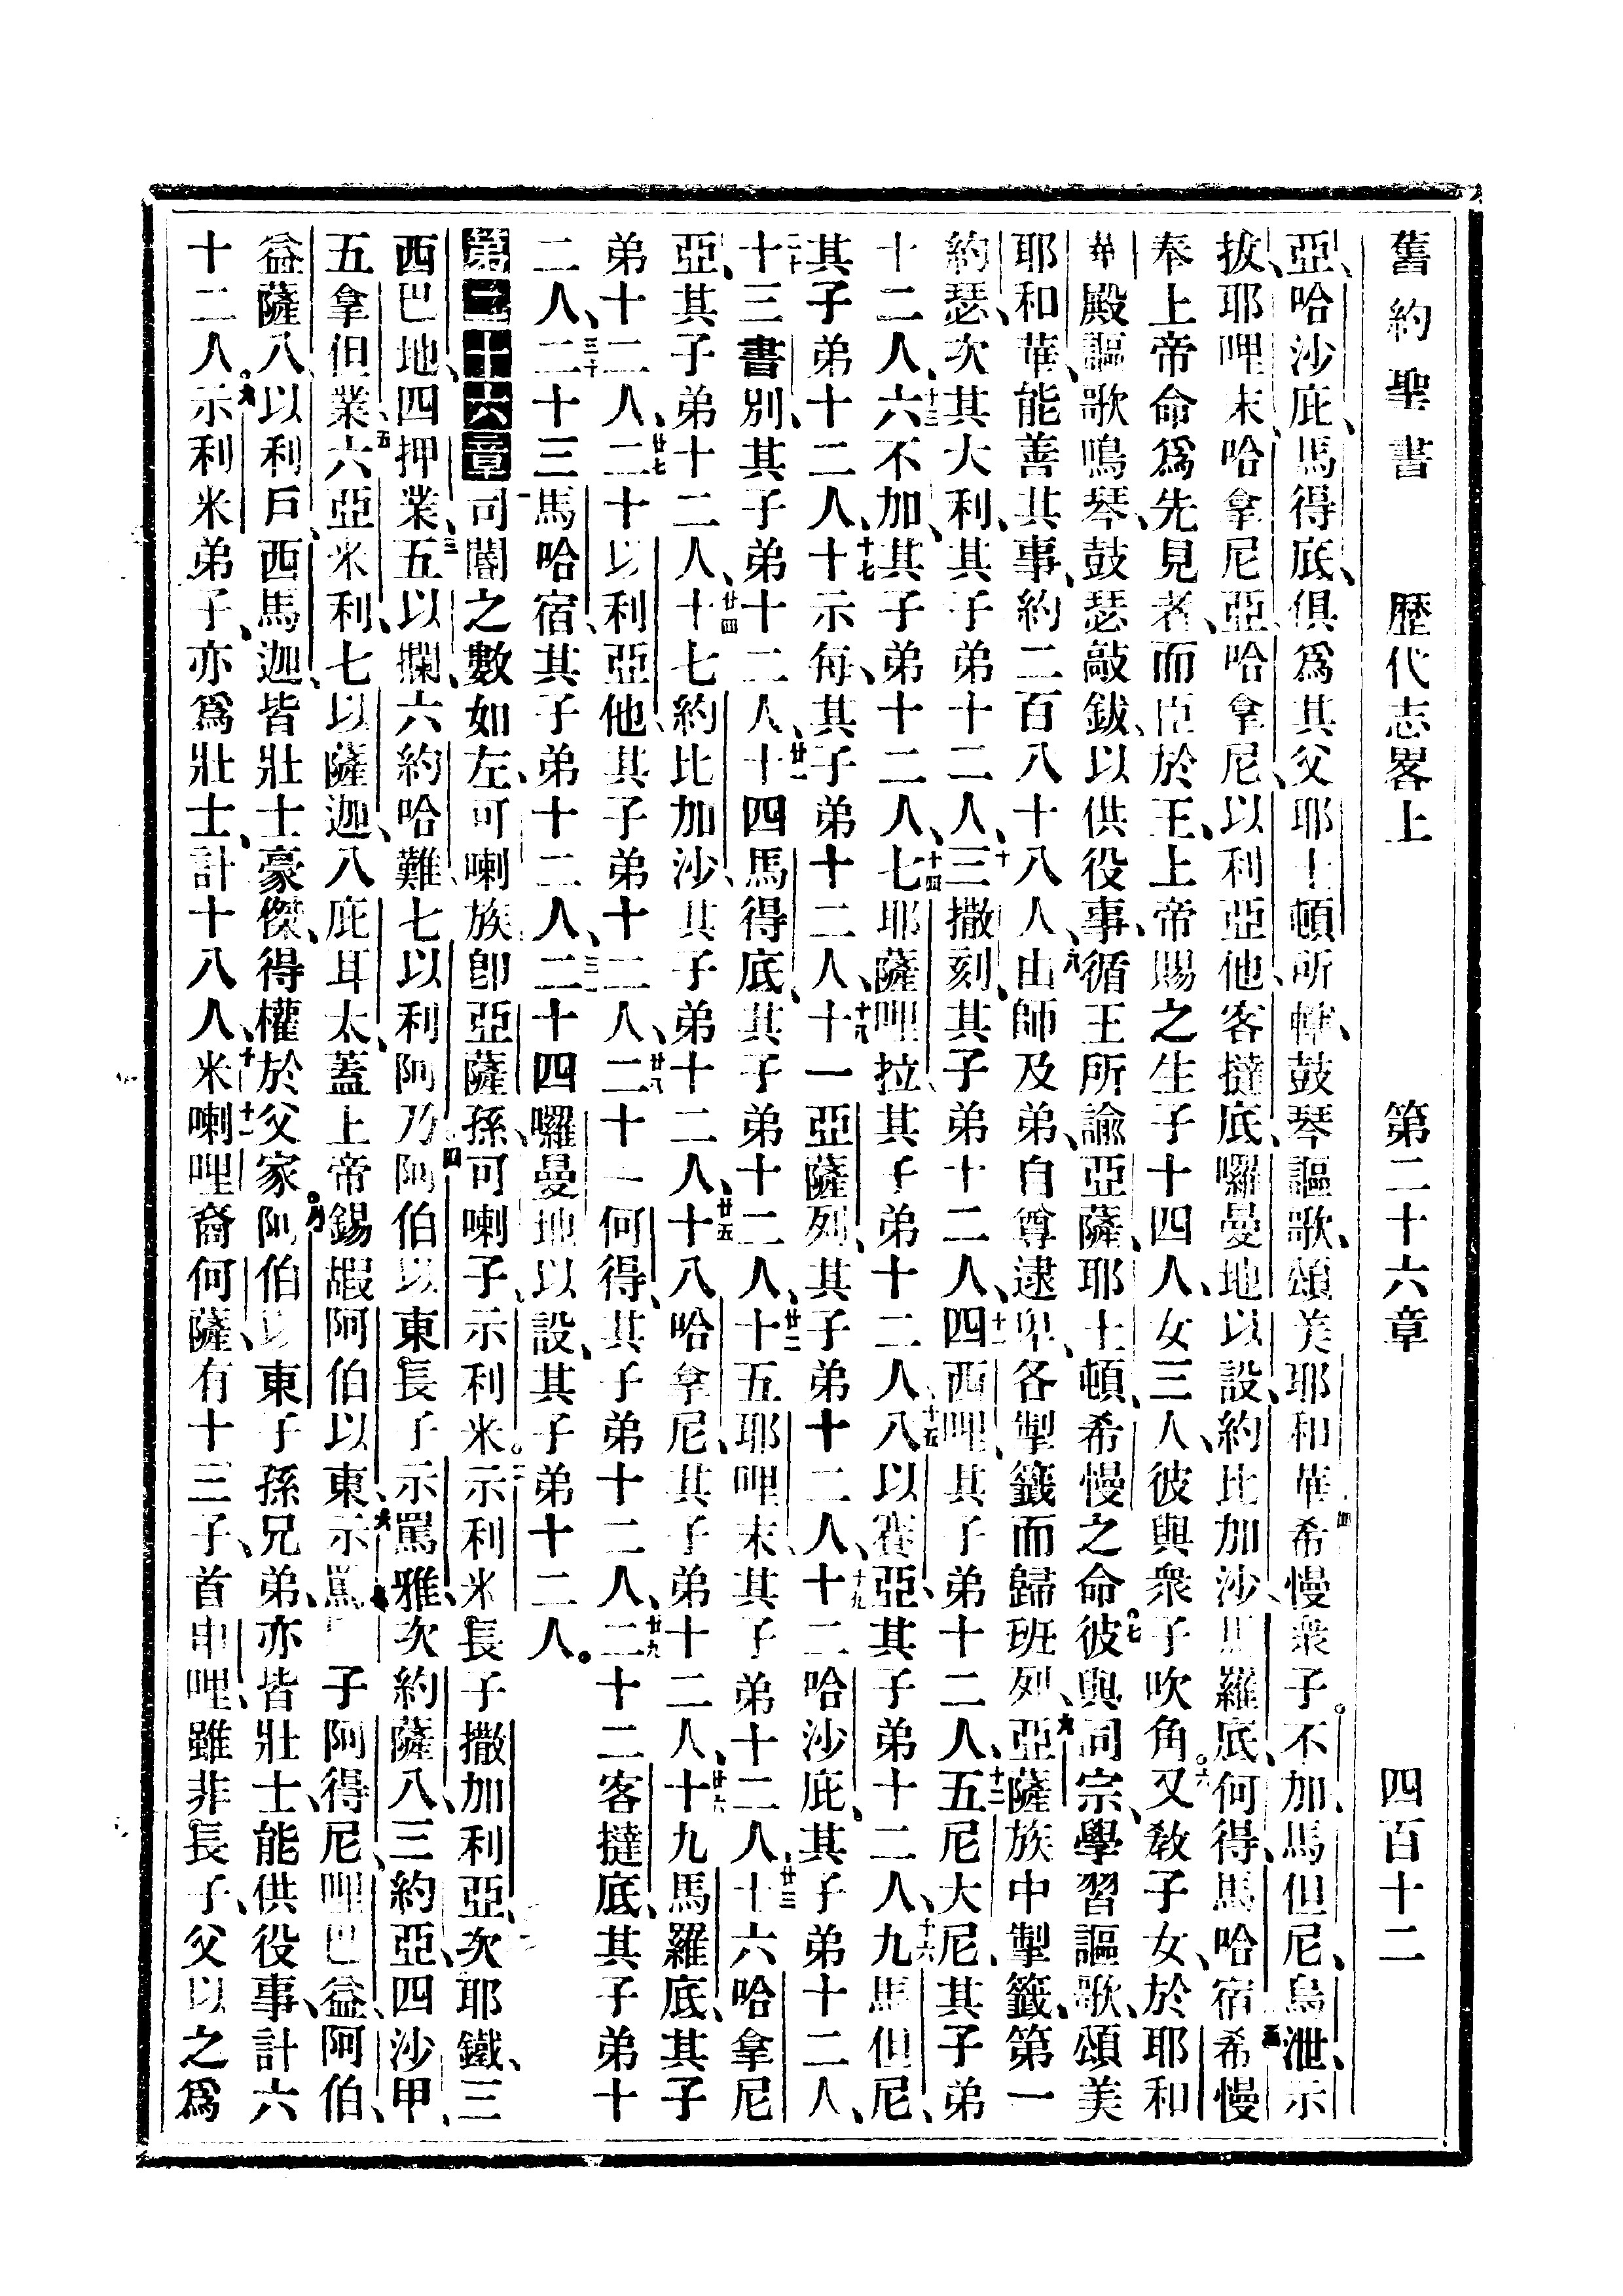 舊約聖書 歷代志畧上 第二十六章 四百十二
亞、哈沙庇、馬得底、俱爲其父耶土頓所轄、鼓琴謳歌、頌美耶和華、四希慢衆子。不加、馬但尼、烏泄、示
拔、耶哩末、哈拿尼亞、哈拿尼、以利亞他、客撻底、囉曼地以設、約比加沙、馬羅底、何得、馬哈宿、五希慢
奉上帝命爲先見者、而臣於王、上帝賜之生子十四人、女三人、彼與衆子吹角。六又教子女、於耶和
華殿謳歌鳴琴、鼓瑟敲鈸、以供役事、循王所諭亞薩、耶土頓、希慢之命。七彼與同宗、學習謳歌、頌美
耶和華、能善其事、約二百八十八人、八由師及弟、自尊逮卑、各掣籤而歸班列、九亞薩族中掣籤、第一
約瑟、次其大利、其子弟十二人、十三撒刻、其子弟十二人、十一四西哩、其子弟十二人、十二五尼大尼、其子弟
十二人、十三六不加、其子弟十二人、十四七耶薩哩拉、其子弟十二人、十五八以賽亞、其子弟十二人、十六九馬但尼、
其子弟十二人、十七十示每、其子弟十二人、十八十一亞薩列、其子弟十二人、十九十二哈沙庇、其子弟十二人、
二十十三書別、其子弟十二人、廿一十四馬得底、其子弟十二人、廿二十五耶哩末、其子弟十二人、廿三十六哈拿尼
亞、其子弟十二人、廿四十七約比加沙、其子弟十二人、廿五十八哈拿尼、其子弟十二人、廿六十九馬羅底、其子
弟十二人、廿七二十以利亞他、其子弟十二人、廿八二十一何得、其子弟十二人、廿九二十二客撻底、其子弟十
二人、三十二十三馬哈宿、其子弟十二人、三一二十四囉曼地以設、其子弟十二人。
第二十六章 一司閽之數如左、可喇族卽亞薩孫、可喇子、示利米。二示利米長子撒加利亞、次耶鐵、三
西巴地、四押業、三五以攔、六約哈難、七以利阿乃、四阿伯以東長子示罵雅、次約薩八、三約亞、四沙甲、
五拿但業、五六亞米利、七以薩迦、八庇耳太、蓋上帝錫嘏阿伯以東、六示罵子、七阿得尼、哩巴益、阿伯、
益薩八、以利戶、西馬迦、皆壯士豪傑、得權於父家。八阿伯以東子孫兄弟、亦皆壯士、能供役事、計六
十二人。九示利米弟子、亦爲壯士、計十八人、十米喇哩裔何薩、有十三子、首申哩、雖非長子、父以之爲